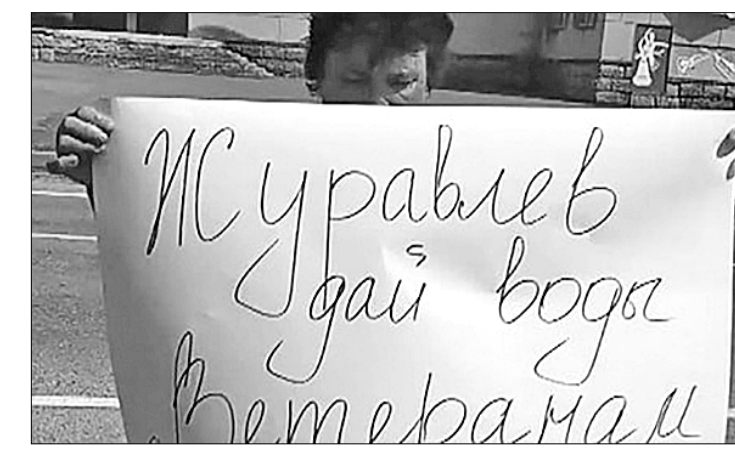 Журавлев
дай воды
Ветеранам